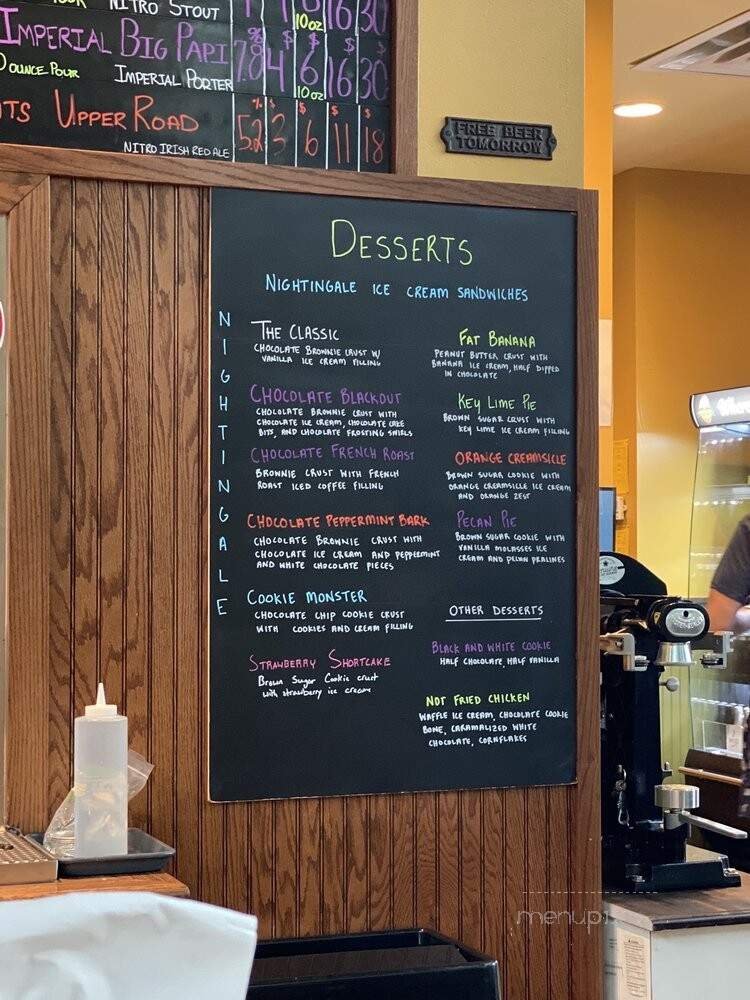 NITRO STOUT
10oz
16 30
IMPERIAL BIG PAPI 7.8 4 6 16 30
OUNCE POUR IMPERIAL PORTER 10oz
UPPER ROAD 5.2 3 6 11 18
NITRO IRISH RED ALE
FREE BEER
TOMORROW
DESSERTS
NIGHTINGALE ICE CREAM SANDWICHES
NIGHTINGALE
THE CLASSIC
CHOCOLATE BROWNIE CRUST W/
VANILLA ICE CREAM FILLING
CHOCOLATE BLACKOUT
CHOCOLATE BROWNIE CRUST WITH
CHOCOLATE ICE CREAM, CHOCOLATE CAKE
BITS, AND CHOCOLATE FROSTING SWIRLS
CHOCOLATE FRENCH ROAST
BROWNIE CRUST WITH FRENCH
ROAST ICED COFFEE FILLING
CHOCOLATE PEPPERMINT BARK
CHOCOLATE BROWNIE CRUST WITH
CHOCOLATE ICE CREAM AND PEPPERMINT
AND WHITE CHOCOLATE PIECES
COOKIE MONSTER
CHOCOLATE CHIP COOKIE CRUST
WITH COOKIES AND CREAM FILLING
STRAWBERRY SHORTCAKE
Brown Sugar Cookie crust
with strawberry ice cream
FAT BANANA
PEANUT BUTTER CRUST WITH
BANANA ICE CREAM, HALF DIPPED
IN CHOCOLATE
KEY LIME PIE
BROWN SUGAR CRUST WITH
KEY LIME ICE CREAM FILLING
ORANGE CREAMSICLE
BROWN SUGAR COOKIE WITH
ORANGE CREAMSICLE ICE CREAM
AND ORANGE ZEST
PECAN PIE
BROWN SUGAR COOKIE WITH
VANILLA MOLASSES ICE
CREAM AND PECAN PRALINES
OTHER DESSERTS
BLACK AND WHITE COOKIE
HALF CHOCOLATE, HALF VANILLA
NOT FRIED CHICKEN
WAFFLE ICE CREAM, CHOCOLATE COOKIE
BONE, CARAMALIZED WHITE
CHOCOLATE, CORNFLAKES
menupix